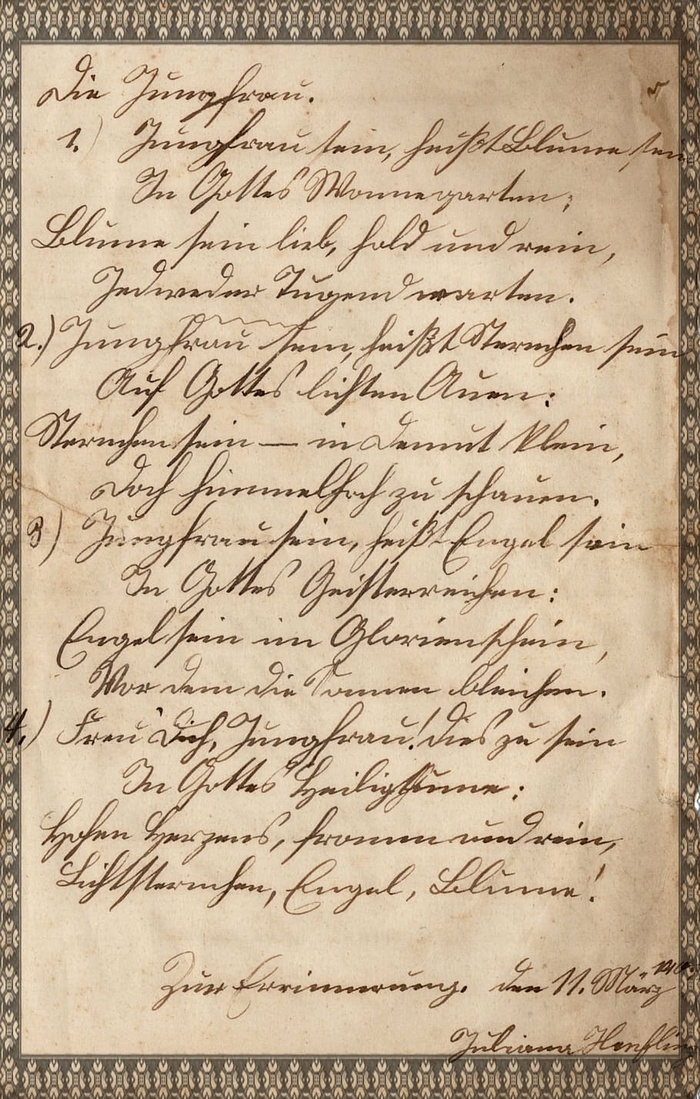 Die Jungfrau.
1.) Jungfrau sein, heißt Blume sein
In Gottes Wonnegarten;
Blume sein lieb, hold und rein,
Jedweder Tugend warten.
2.) Jungfrau sein, heißt Sternchen sein
Auf Gottes lichten Auen:
Sternchen sein — in Demut klein,
Doch himmelhoch zu schauen.
3) Jungfrau sein, heißt Engel sein
In Gottes Geisterreichen:
Engel sein im Glorienschein,
Vor dem die Sonnen bleichen.
4.) Freu' Dich, Jungfrau! dies zu sein
In Gottes Heiligthume:
Hohen Herzens, fromm und rein,
Lichtsternchen, Engel, Blume!
Zur Erinnerung. den 11. März
Juliana